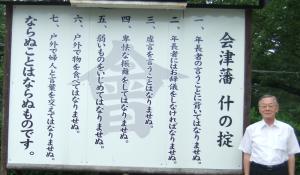 会津藩 什の掟
一、年長者の言うことに背いてはなりませぬ。
二、年長者にはお辞儀をしなければなりませぬ。
三、虚言を言うことはなりませぬ。
四、卑怯な振舞をしてはなりませぬ。
五、弱いものをいじめてはなりませぬ。
六、戸外で物を食べてはなりませぬ。
七、戸外で婦人と言葉を交えてはなりませぬ。
ならぬことはならぬものです。